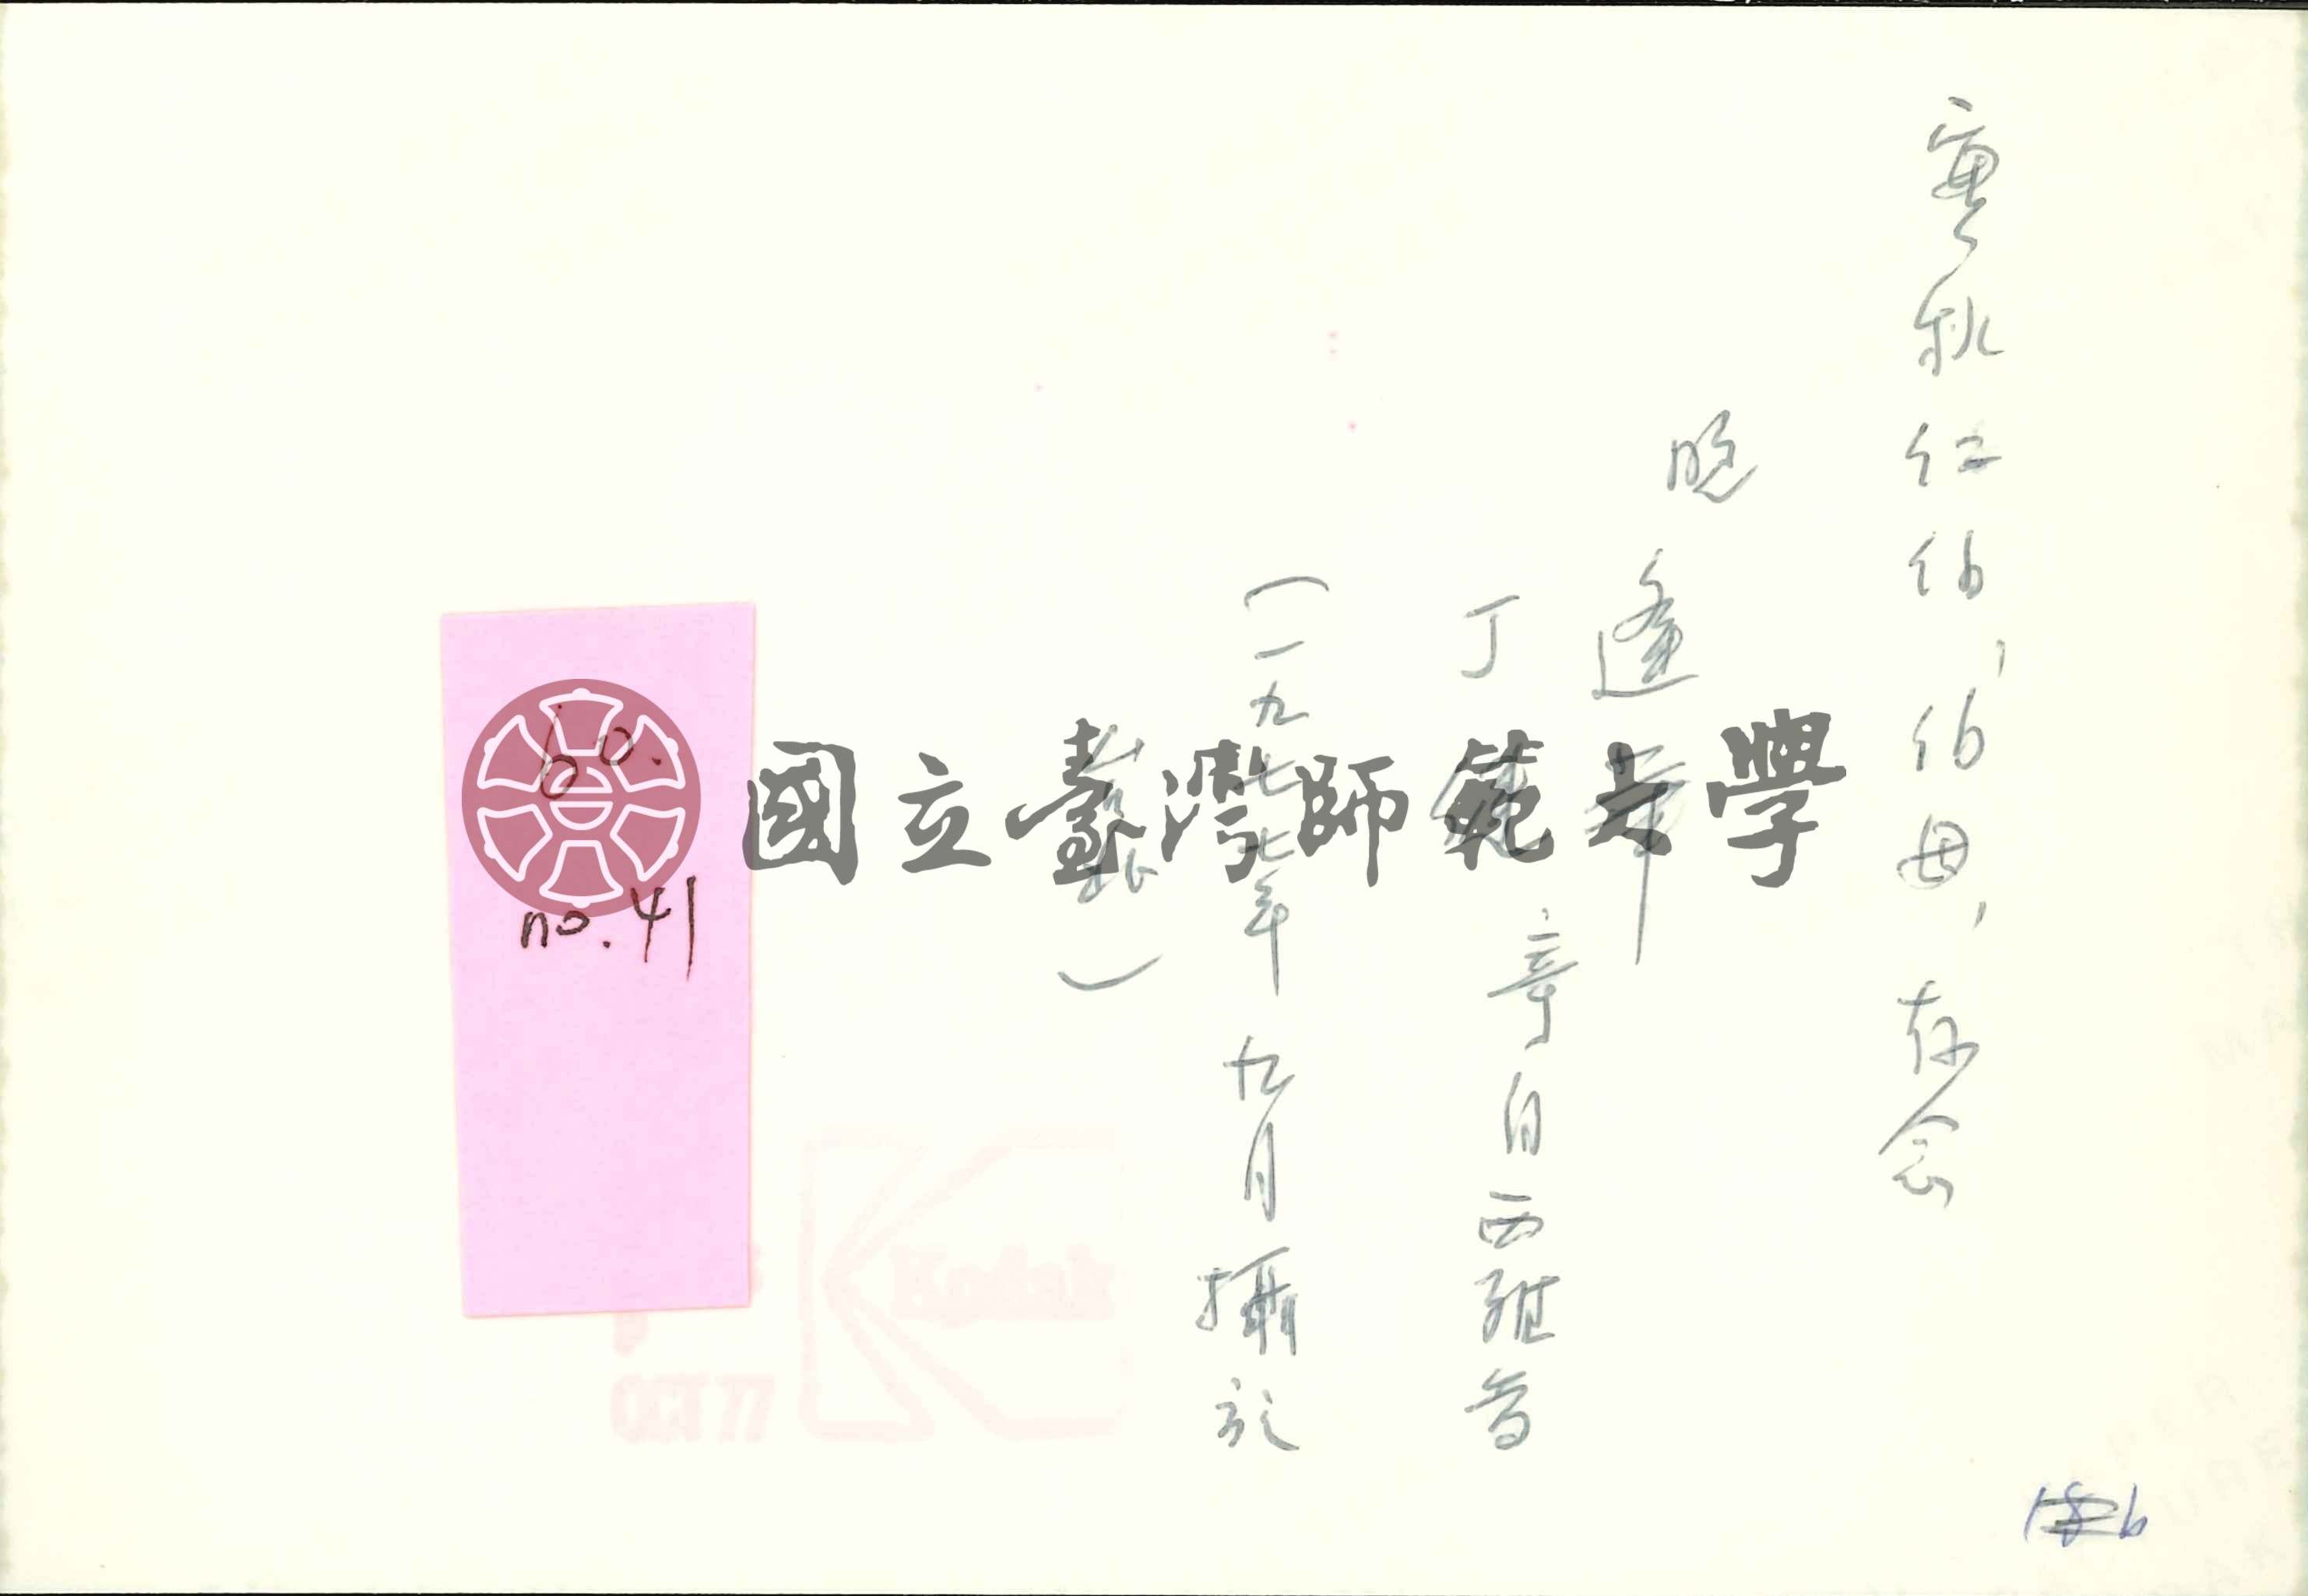 實秋仁伯,伯母,存念
晚
逢華
丁健
章自西雅音
(一九七七年九月攝於
臺北)
國立臺灣師範大學
60.
no.41
Kodak
OCT 77